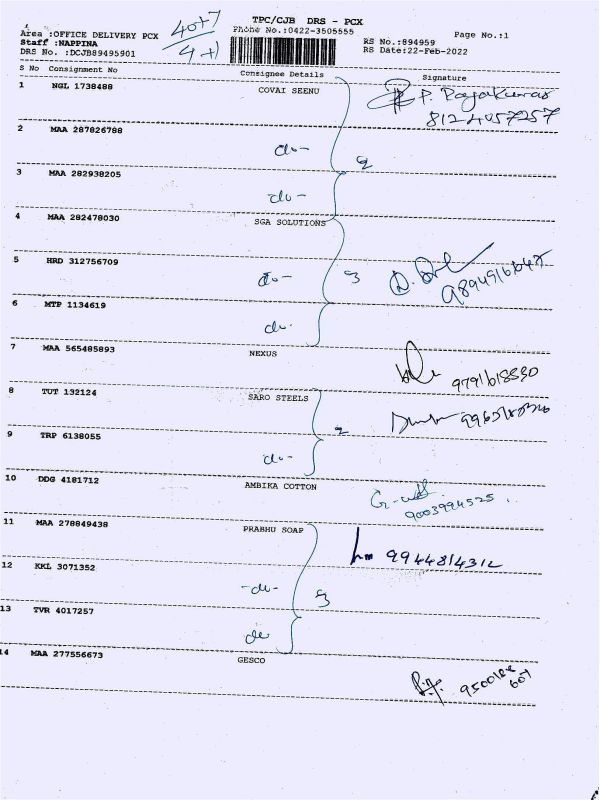 TPC/CJB DRS - PCX
Area :OFFICE DELIVERY PCX
40+7
Phone No.:0422-3505555
Page No.:1
Staff :NAPPINA
4+1
RS No.:894959
DRS No. :DCJB89495901
RS Date:22-Feb-2022
S No Consignment No Consignee Details Signature
1 NGL 1738488 COVAI SEENU P. Rajakumar
8124057257
2 MAA 287826788 do-
2
3 MAA 282938205 do-
4 MAA 282478030 SGA SOLUTIONS
5 HRD 312756709 do- 3
6 MTP 1134619 do.
7 MAA 565485893 NEXUS
9791618530
8 TUT 132124 SARO STEELS
2
9 TRP 6138055 do-
10 DDG 4181712 AMBIKA COTTON
9003994525
11 MAA 278849438 PRABHU SOAP
9944814312
12 KKL 3071352 -do- 3
13 TVR 4017257 do
14 MAA 277556673 GESCO